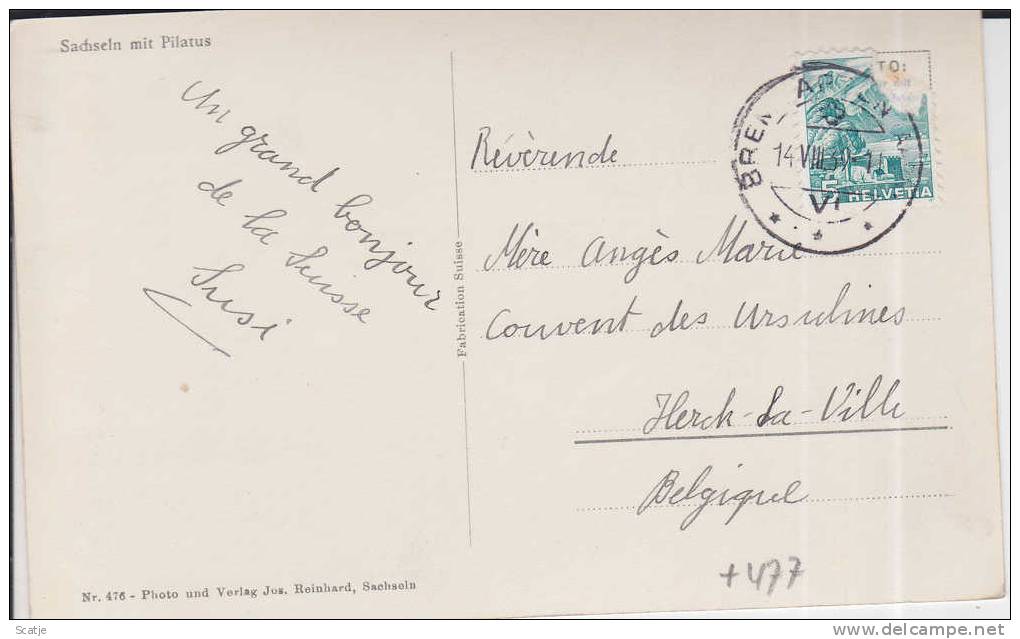 Sachseln mit Pilatus
Un grand bonjour
de la Suisse
Susi
Fabrication Suisse
TO:
14 VIII 39-11
VI
5 HELVETIA
Révèrende
Mére Angès Marie
Couvent des Ursulines
Herck-La-Ville
Belgique
+477
Nr. 476 - Photo und Verlag Jos. Reinhard, Sachseln
Scatje
delcampe.net